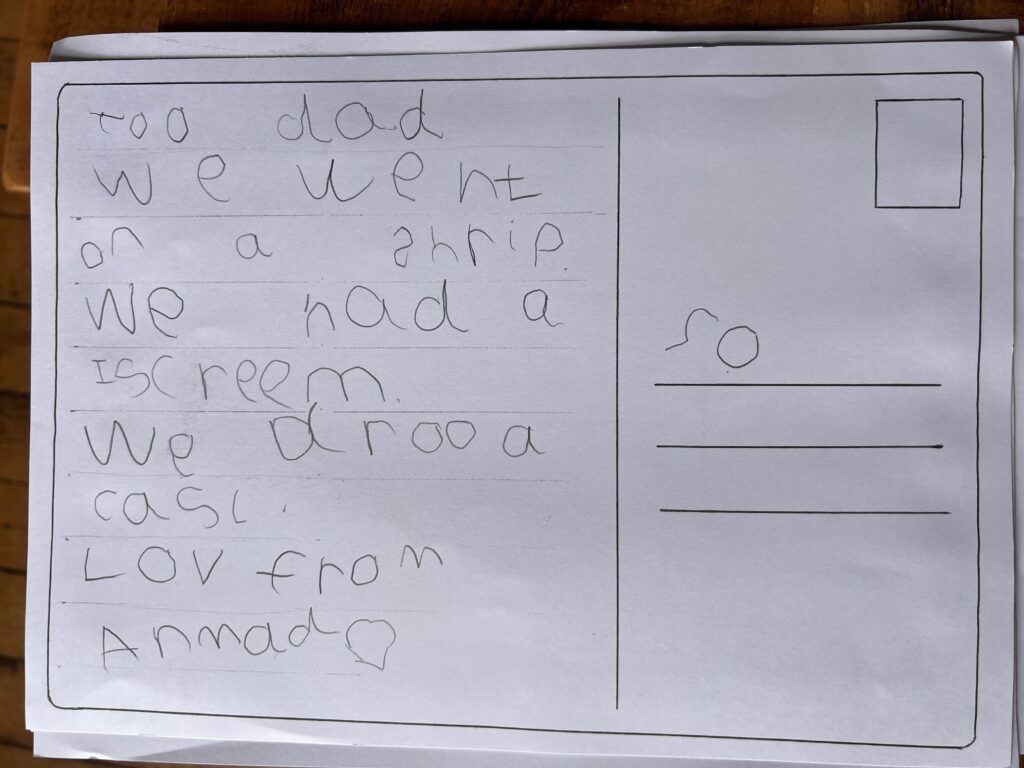 too dad
we went
on a shrip.
We had a
Iscreem.
We droo a
casl.
LOV from
Anmad
so